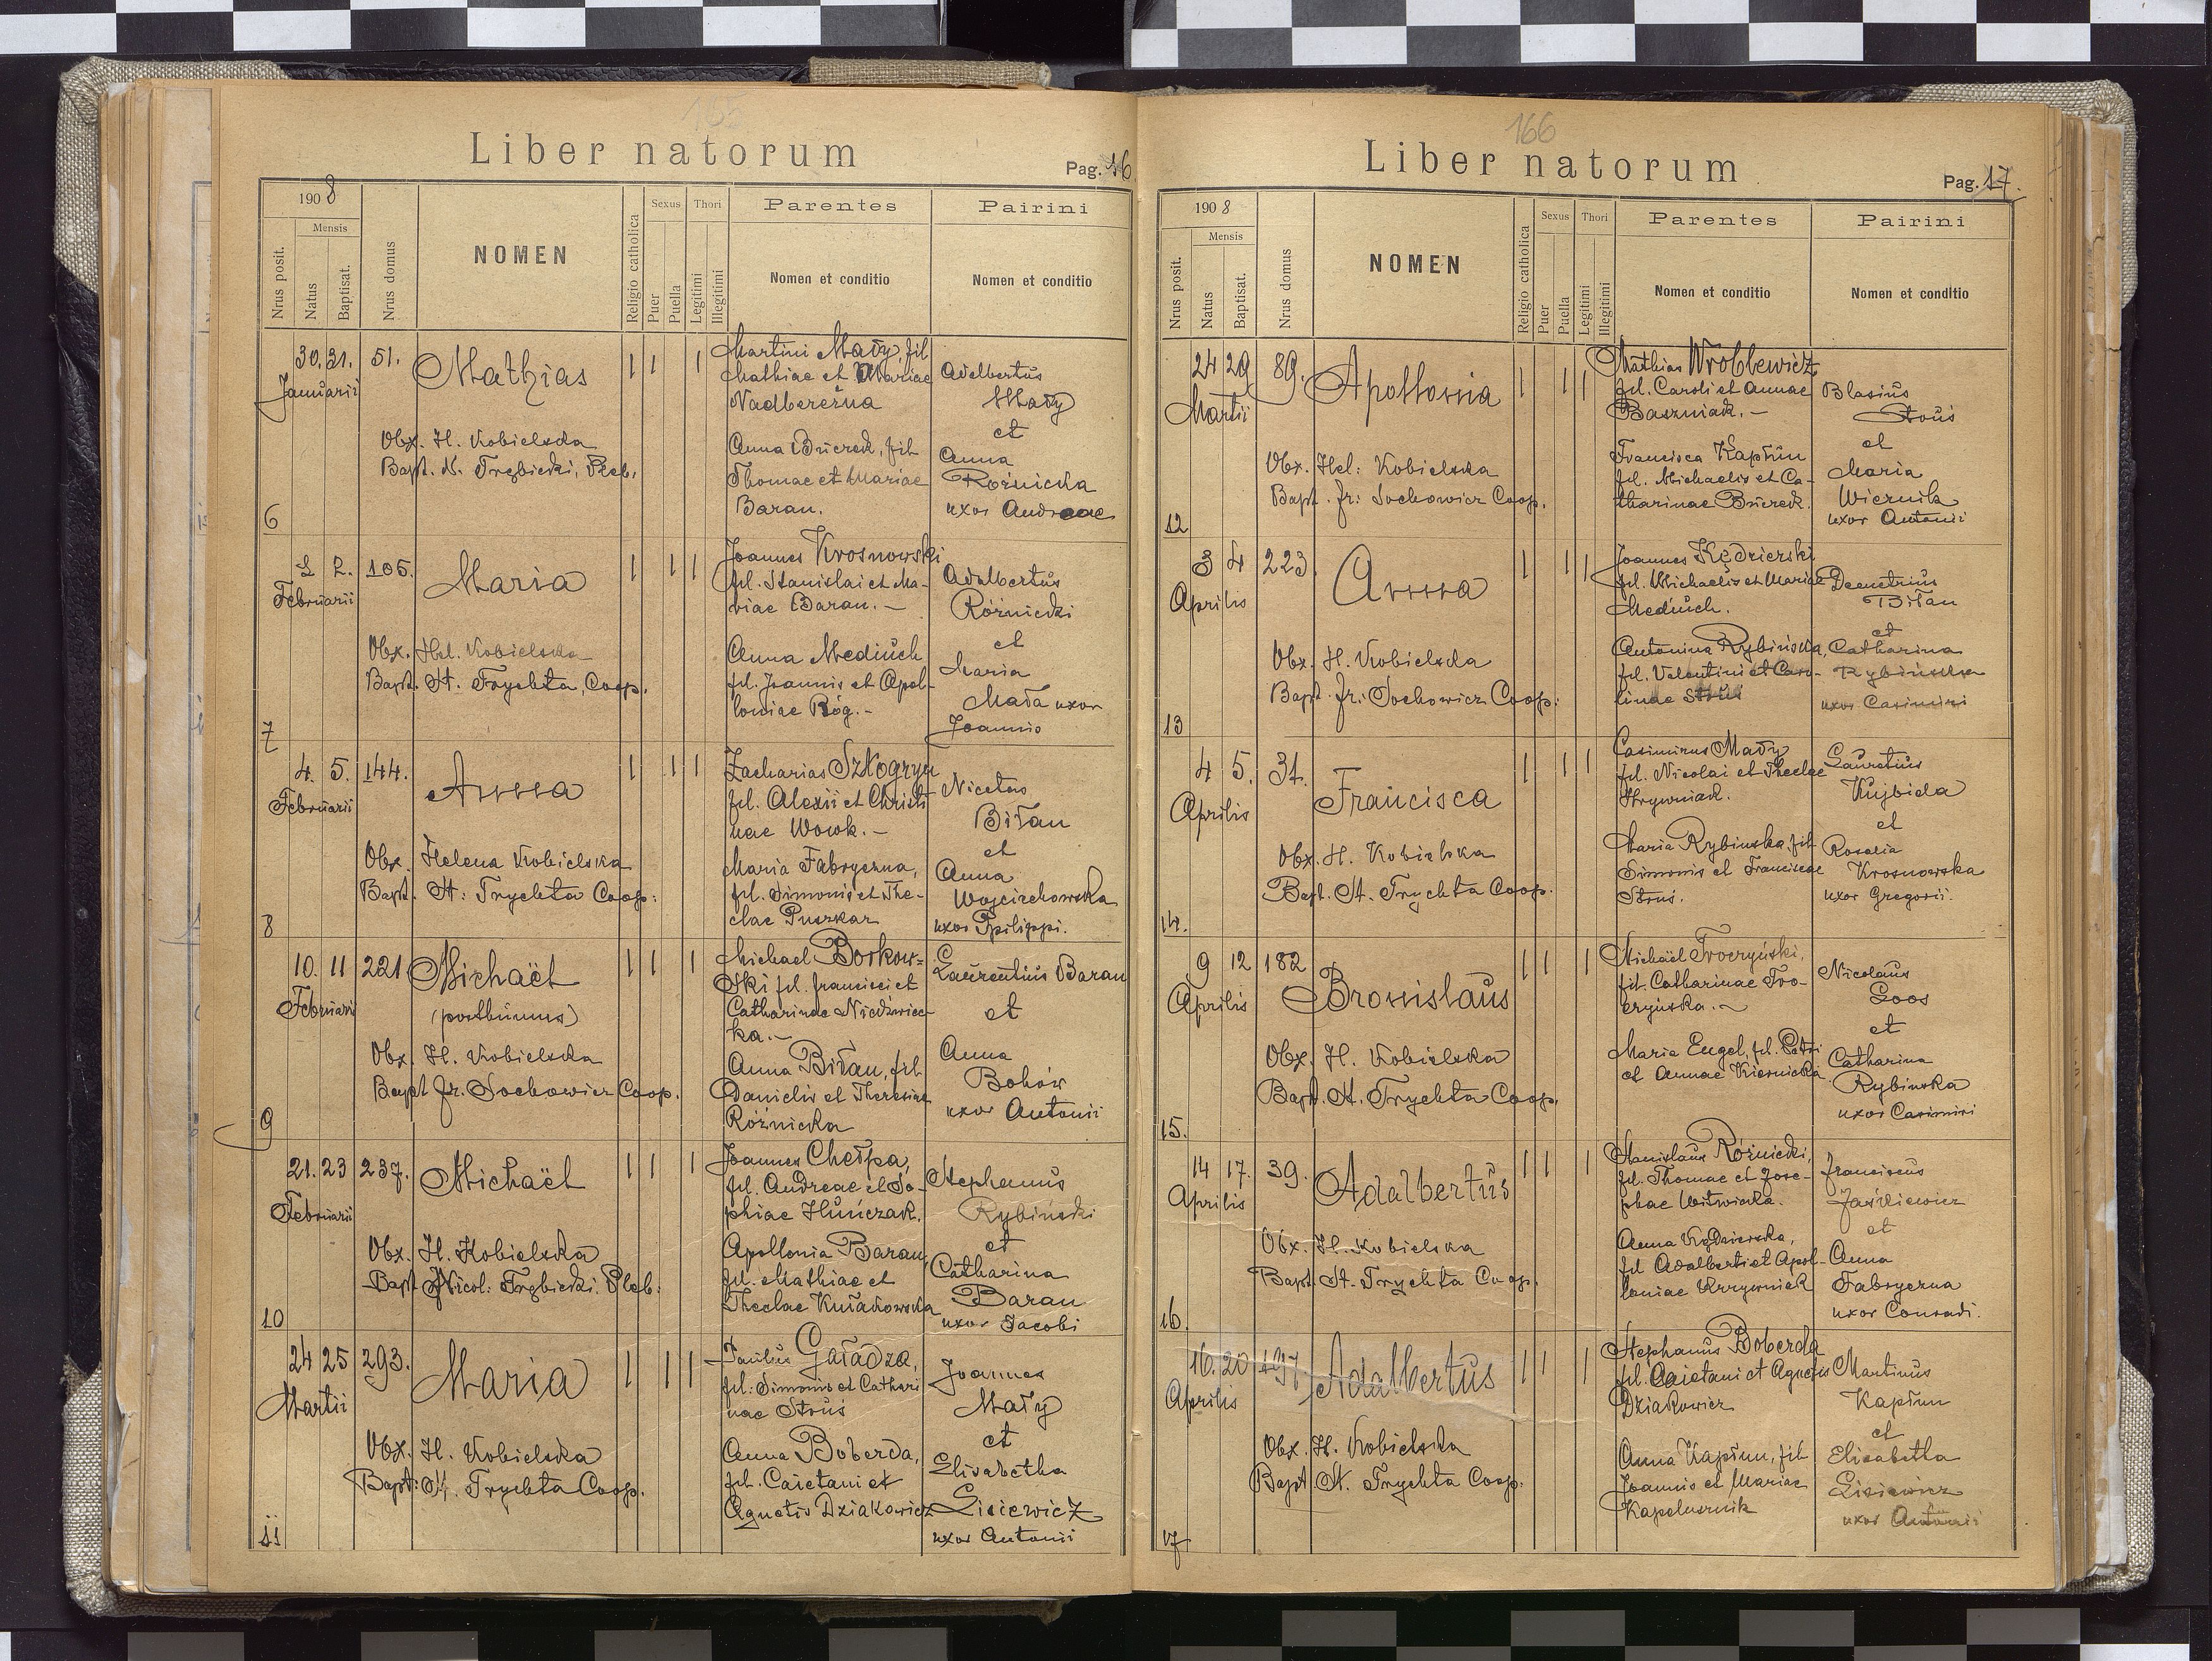 155
Liber natorum
Pag. 16
1908
Mensis
Nrus posit.
Natus
Baptisat.
Nrus domus
NOMEN
Religio catholica
Sexus
Puer
Puella
Thori
Legitimi
Illegitimi
Parentes
Nomen et conditio
Pairini
Nomen et conditio
6
30. 31.
Januarii
51.
Mathias
Obx. H. Kobielska
Bapt. N. Trzbicki, Pleb.
Martini Mały, fil
Mathiae et Mariae
Nadbereżna
Anna Burek, fil
Thomae et Mariae
Baran.
Adelbertus
Mały
et
Anna
Różnicka
uxor Andreae
7
1 2.
Februarii
105.
Maria
Obx. Hel. Kobielska
Bapt. St. Trychta, Coop.
Joannes Krosnowski
fil. Stanislai et Ma-
riae Baran. -
Anna Mediuch
fil. Joannis et Apol-
loniae Róg. -
Adalbertus
Różnicki
et
Maria
Mała uxor
Joannis
8
4. 5.
Februarii
144.
Anna
Obx. Helena Kobielska
Bapt. St: Trychta Coop:
Zacharias Szkogryn
fil. Alexii et Christi
nae Wowk. -
Maria Fabryczna,
fil. Simonis et The-
clae Puszkar
Nicetas
Biłan
et
Anna
Wojciechowska
uxor Philippi.
9
10. 11
Februarii
221
Michaël
(posthumus)
Obx. H. Kobielska
Bapt Fr. Sochowicz Coop.
Michael Borkow=
ski fil. Francisci et
Catharinae Niedzwiec-
ka. -
Anna Biłan, fil
Danielis et Theresiae
Różnicka
Laurentius Baran
et
Anna
Bohów
uxor Antonii
10
21. 23
Februarii
237.
Michaël
Obx. H. Kobielska
Bapt Nicol: Trzbicki. Pleb:
Joannes Chełpa,
fil. Andreae et So-
phiae Huńczak.
Apollonia Baran
fil. Mathiae et
Theclae Kułakowska
Stephanus
Rybiński
et
Catharina
Baran
uxor Jacobi
11
24 25
Martii
293.
Maria
Obx. H. Kobielska
Bapt: St. Trychta Coop.
Paulus Gaładza,
fil: Simonis et Cathari
nae Struś
Anna Boberda,
fil. Caietani et
Agnetis Dziakowicz
Joannes
Mały
et
Elisabetha
Lisiewicz
uxor Antonii
166
Liber natorum
Pag. 17.
1908
Mensis
Nrus posit.
Natus
Baptisat.
Nrus domus
NOMEN
Religio catholica
Sexus
Puer
Puella
Thori
Legitimi
Illegitimi
Parentes
Nomen et conditio
Pairini
Nomen et conditio
12
24 29
Martii
89.
Apollonia
Obx. Hel: Kobielska
Bapt. Fr: Sochowicz Coop.
Mathias Wroblewicz
fil. Caroli et Annae
Baszniak. -
Francisca Kapłun
fil. Michaelis et Ca-
tharinae Burek.
Blasius
Struś
et
Maria
Wiernik
uxor Antonii
13
3 4
Aprilis
223.
Anna
Obx. H. Kobielska
Bapt. Fr: Sochowicz Coop:
Joannes Kędzierski
fil. Michaelis et Mariae
Mediuch.
Antonina Rybińska,
fil. Valentini et Caro-
linae Struś
Demetrius
Biłan
et
Catharina
Rybińska
uxor Casimiri
14.
4 5.
Aprilis
31.
Francisca
Obx. H. Kobielska
Bapt. St. Trychta Coop.
Casimirus Mały
fil. Nicolai et Theclae
Hrywniak.
Maria Rybinska, fil
Simonis et Franciscae
Struś.
Kujbida
et
Rosalia
Krosnowska
uxor Gregorii.
15.
9 12
Aprilis
182
Bronislaus
Obx. H. Kobielska
Bapt. St. Trychta Coop.
Michaël Troczyński,
fil. Catharinae Tro-
czyńska. -
Maria Engel, fil. Petri
et Annae Kiernicka
Nicolaus
Goos
et
Catharina
Rybinska
uxor Casimiri
16.
14 17.
Aprilis
39.
Adalbertus
Obx. H. Kobielska
Bapt. St. Trychta Coop.
Stanislaus Różnicki,
fil. Thomae et Jose-
phae Witwicka.
Anna Kędzierska,
fil Adalberti et Apol-
loniae Krzywniak
Franciscus
Jaśkiewicz
et
Anna
Fabryczna
uxor Conradi.
17
16. 20
Aprilis
197
Adalbertus
Obx. H. Kobielska
Bapt St. Trychta Coop.
Stephanus Boberda
fil. Caietani et Agnetis
Dziakowicz
Anna Kapłun, fil
Joannis et Mariae
Kapelusznik
Martinus
Kapłun
et
Elisabetha
Lisiewicz
uxor Antonii